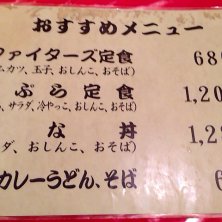 おすすめメニュー
ファイターズ定食 680
ムカツ、玉子、おしんこ、おそば)
ぷら定食 1,20
、サラダ、冷やっこ、おしんこ、おそば)
な丼 1,2
ダ、おしんこ、おそば)
カレーうどん、そば 6